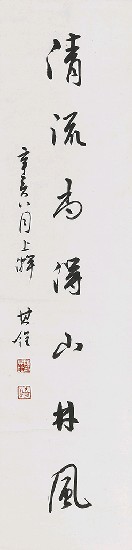 清流尚得山林風
辛亥八月上澣